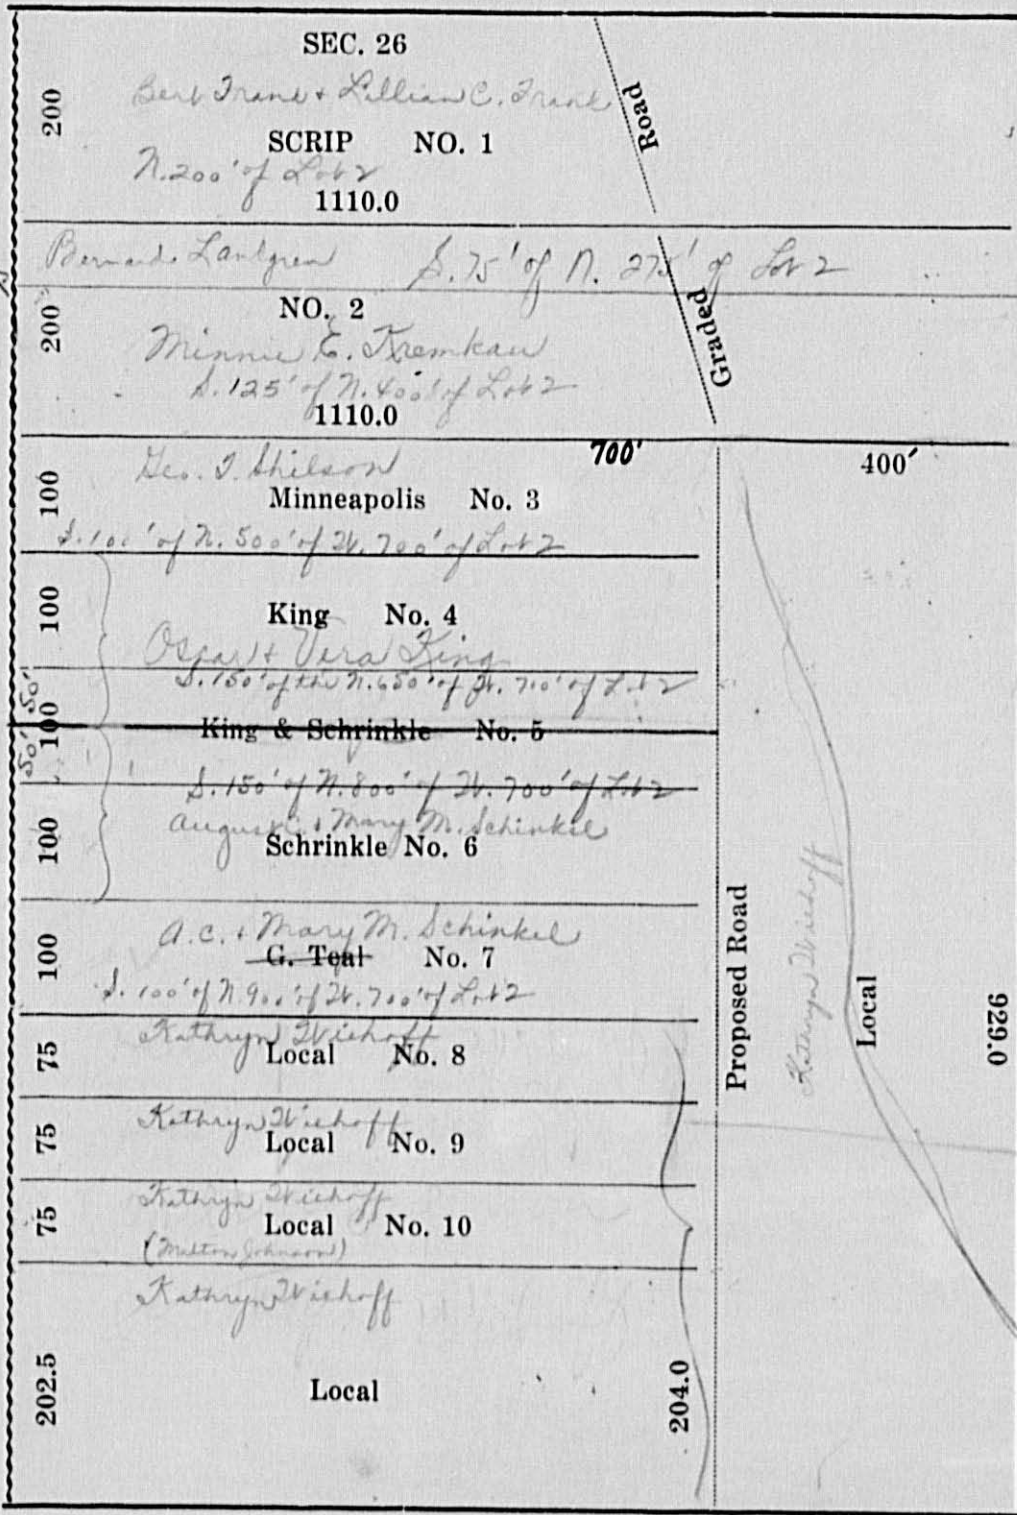 SEC. 26
Bert Frank & Lillian C. Frank
200
SCRIP NO. 1
N. 200' of Lot 2
1110.0
Road
Bernard S. 75' of N. 275' of Lot 2
200
NO. 2
Minnie E. Kremkau
S. 125' of N. 400' of Lot 2
1110.0
Graded
700'
400'
Geo. T. Shilson
100
Minneapolis No. 3
S. 100' of N. 500' of W. 700' of Lot 2
100
King No. 4
Oscar & Vera King
S. 150' of the N. 650' of W. 700' of Lot 2
50'
100
King & Schrinkle No. 5
50'
S. 150' of N. 800' of W. 700' of Lot 2
August C. & Mary M. Schinkel
100
Schrinkle No. 6
A.C. & Mary M. Schinkel
100
G. Teal No. 7
S. 100' of N. 900' of W. 700' of Lot 2
Kathryn Wiehoff
75
Local No. 8
Kathryn Wiehoff
75
Local No. 9
Kathryn Wiehoff
75
Local No. 10
(Milton Johnson)
Kathryn Wiehoff
202.5
Local
204.0
Proposed Road
Kathryn Wiehoff
Local
929.0